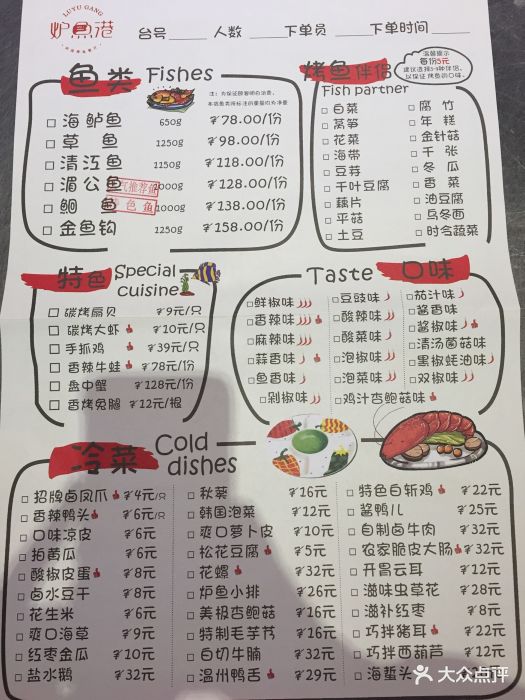 LUYU GANG
炉鱼港
台号 人数 下单员 下单时间
鱼类 Fishes
海鲈鱼 650g ₮78.00/份
草 鱼 1250g ₮98.00/份
清江鱼 1150g ₮118.00/份
湄公鱼 1000g ₮128.00/份
鮰 鱼 1000g ₮138.00/份
金鱼钩 1250g ₮158.00/份
烤鱼伴侣
Fish partner
温馨提示
每份5元
白菜 腐 竹
莴笋 年 糕
花菜 金针菇
海带 千 张
豆芽 冬 瓜
千叶豆腐 香 菜
藕片 油豆腐
平菇 乌冬面
土豆 时令蔬菜
特色 Special cuisine
碳烤扇贝 ₮9元/只
碳烤大虾 ₮10元/只
手抓鸡 ₮39元/只
香辣牛蛙 ₮78元/份
盘中蟹 ₮128元/份
香烤兔腿 ₮12元/根
Taste 口味
鲜椒味 豆豉味 茄汁味
香辣味 酸辣味 酱香味
麻辣味 酸菜味 酱椒味
蒜香味 泡椒味 清汤菌菇味
鱼香味 泡菜味 黑椒蚝油味
剁椒味 鸡汁杏鲍菇味 双椒味
冷菜 Cold dishes
招牌卤凤爪 ₮4元/只
香辣鸭头 ₮6元/只
口味凉皮 ₮6元
拍黄瓜 ₮6元
酸椒皮蛋 ₮8元
卤水豆干 ₮8元
花生米 ₮6元
爽口海草 ₮9元
红枣金瓜 ₮10元
盐水鹅 ₮32元
秋葵 ₮16元
韩国泡菜 ₮12元
爽口萝卜皮 ₮10元
松花豆腐 ₮5元
花螺 ₮32元
炉鱼小排 ₮26元
美极杏鲍菇 ₮16元
特制毛芋艿 ₮16元
白切牛腩 ₮32元
温州鸭舌 ₮29元
特色白斩鸡 ₮22元
酱鸭儿 ₮25元
自制卤牛肉 ₮32元
农家脆皮大肠 ₮32元
开胃云耳 ₮12元
滋味虫草花 ₮28元
滋补红枣 ₮8元
巧拌猪耳 ₮22元
巧拌西葫芦 ₮12元
海蜇头
大众点评